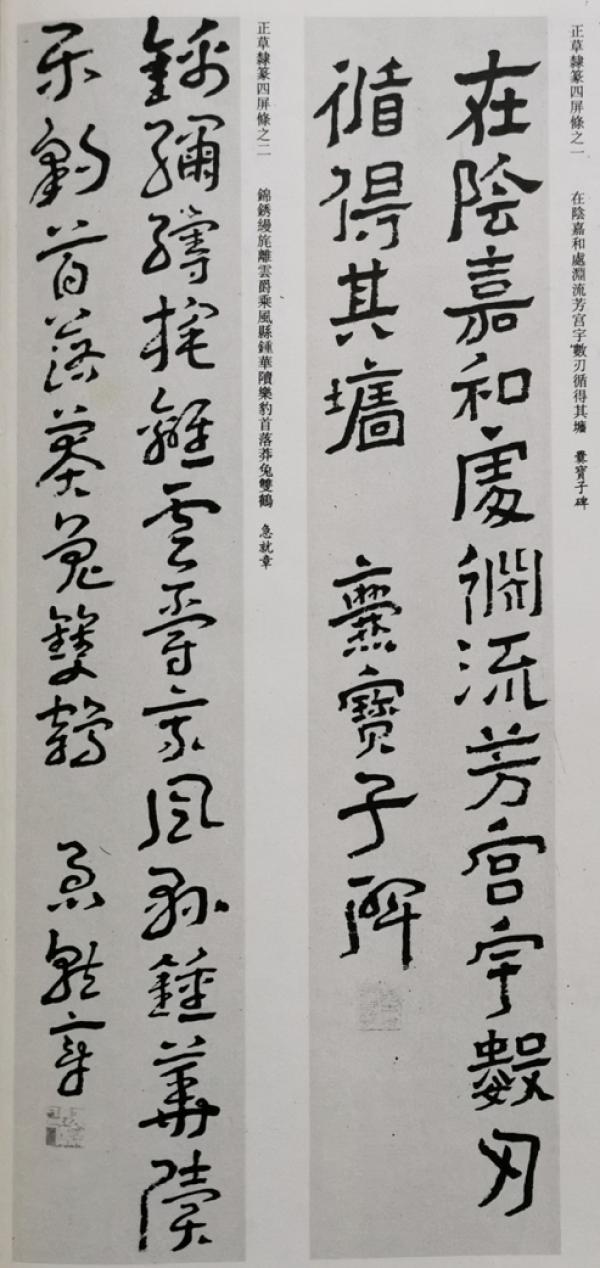 正草隸篆四屏條之一 在陰嘉和處淵流芳宫宇數刃循得其墻 爨寳子碑
在陰嘉和處淵流芳宫宇數刃
循得其墻 爨寶子碑
正草隸篆四屏條之二 錦銹縵旄離雲爵乘風縣鍾華隫樂豹首落莽兔雙鶴 急就章
錦繡縵旄離雲爵乘風縣鍾華隫
樂豹首落莽兔雙鶴 急就章